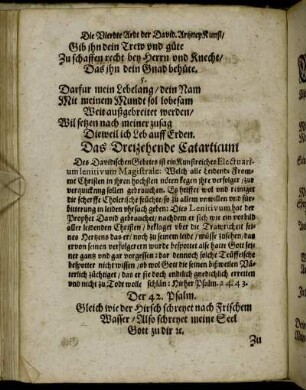 Die Vierdte Ardt der David. Artzney Kunst/
Gib ihn dein Trew vnd güte
Zu schaffen recht bey Herrn vnd Knecht/
Das ihn dein Gnad behüte.
5.
Darfür mein Lebelang/ dein Nam
Mit meinem Mund sol lobesam
Weit außgebreitet werden/
Wil setzen nach meiner zusag
Dieweil ich Leb auff Erden.
Das Dreizehende Catarticum
Des Davidischen Gebetes ist ein Kunstreicher Electuari-
um lenitivum Magistrale: Welch alle Leidende From-
me Christen in ihren höchsten nöten gegen ihre verfolger zur
erquickung sollen gebrauchen. Es heiffet wol vnd reiniget
die scherffe Cholerische feuchte so zu allem vnwillen vnd
bitterung in leiden vhrsach geben: Dies Lenitivum hat der
Prophet David gebrauchet/ nachdem er sich wie ein vorbild
aller leidenden Christen/ beklaget vber die Trawrickeit sei-
nes Hertzens das er/ noch zu seinem leide/ müsse leiden/ das
er von seinen verfolgeren wurde bespottet als hett Gott sei-
ner gantz vnd gar vorgessen: dar dennoch solche Teüffelische
bespötter nicht wissen/ ob wol Gott die seinen bißweilen Vä-
terlich züchtiget/ das er sie doch endlich gnediglich errettet
vnd nicht zu Todt wolle schlan: Hieher Psalm. 2 4. 43.
Der 42. Psalm.
Gleich wie der Hirsch schreyet nach Frischem
Wasser/ Also schreyet meine Seel
Gott zu dir ꝛc.
Zu